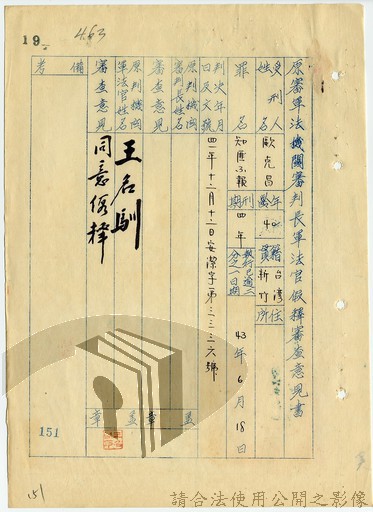 19
463
原審軍法機關審判長軍法官假釋審查意見書
受刑人姓名
歐克昌
年齡
40
籍貫
台灣新竹
住所
罪名
知匪不報
刑期
四年
執行已逾二分之一日期
43年6月18日
判決年月日及文號
四一年十二月十二日安潔字第三三三六號
原判機關審判長姓名
審查意見
原判機關軍法官姓名
王名馴
審查意見
同意假釋
備考
蓋章
蓋章
151
151
請合法使用公開之影像